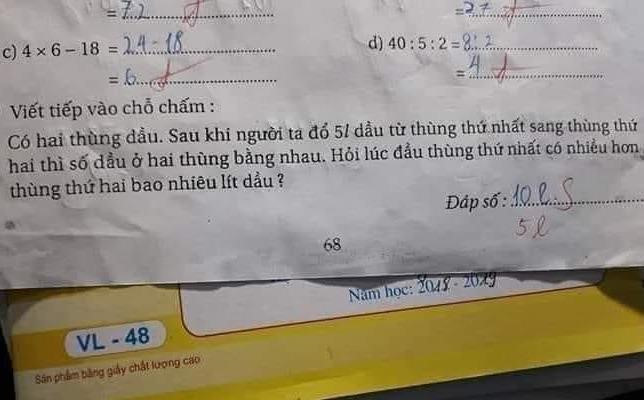 = 72
= 27
c) 4 × 6 – 18 = 24 - 18
d) 40 : 5 : 2 = 8 : 2
= 6
= 4
Viết tiếp vào chỗ chấm :
Có hai thùng dầu. Sau khi người ta đổ 5l dầu từ thùng thứ nhất sang thùng thứ
hai thì số dầu ở hai thùng bằng nhau. Hỏi lúc đầu thùng thứ nhất có nhiều hơn
thùng thứ hai bao nhiêu lít dầu ?
Đáp số : 10 l S
5 l
68
Năm học: 2018 - 2019
VL - 48
Sản phẩm bằng giấy chất lượng cao